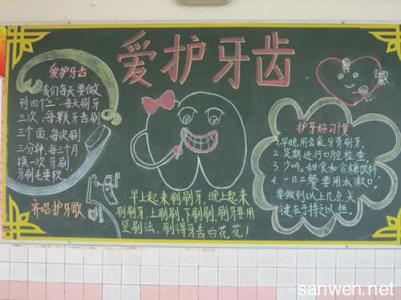 爱护牙齿
爱护牙齿
我们每天要做
到四个三,每天刷牙
三次,每颗牙齿刷
三个面,每次刷
三分钟,每三个月
换一次牙刷
牙刷毛要软
齐唱护牙歌
早上起来刷刷牙,晚上起来
刷刷牙,上刷刷,下刷刷,刷牙要用
竖刷法,刷得牙齿白花花!
护牙好习惯
1.早晚用含氟牙膏刷牙
2.定期进行口腔检查
3.少吃甜食和含糖饮料
一日三餐要用水漱口
要做到以上几点关
键在于持之以恒.
sanwen.net